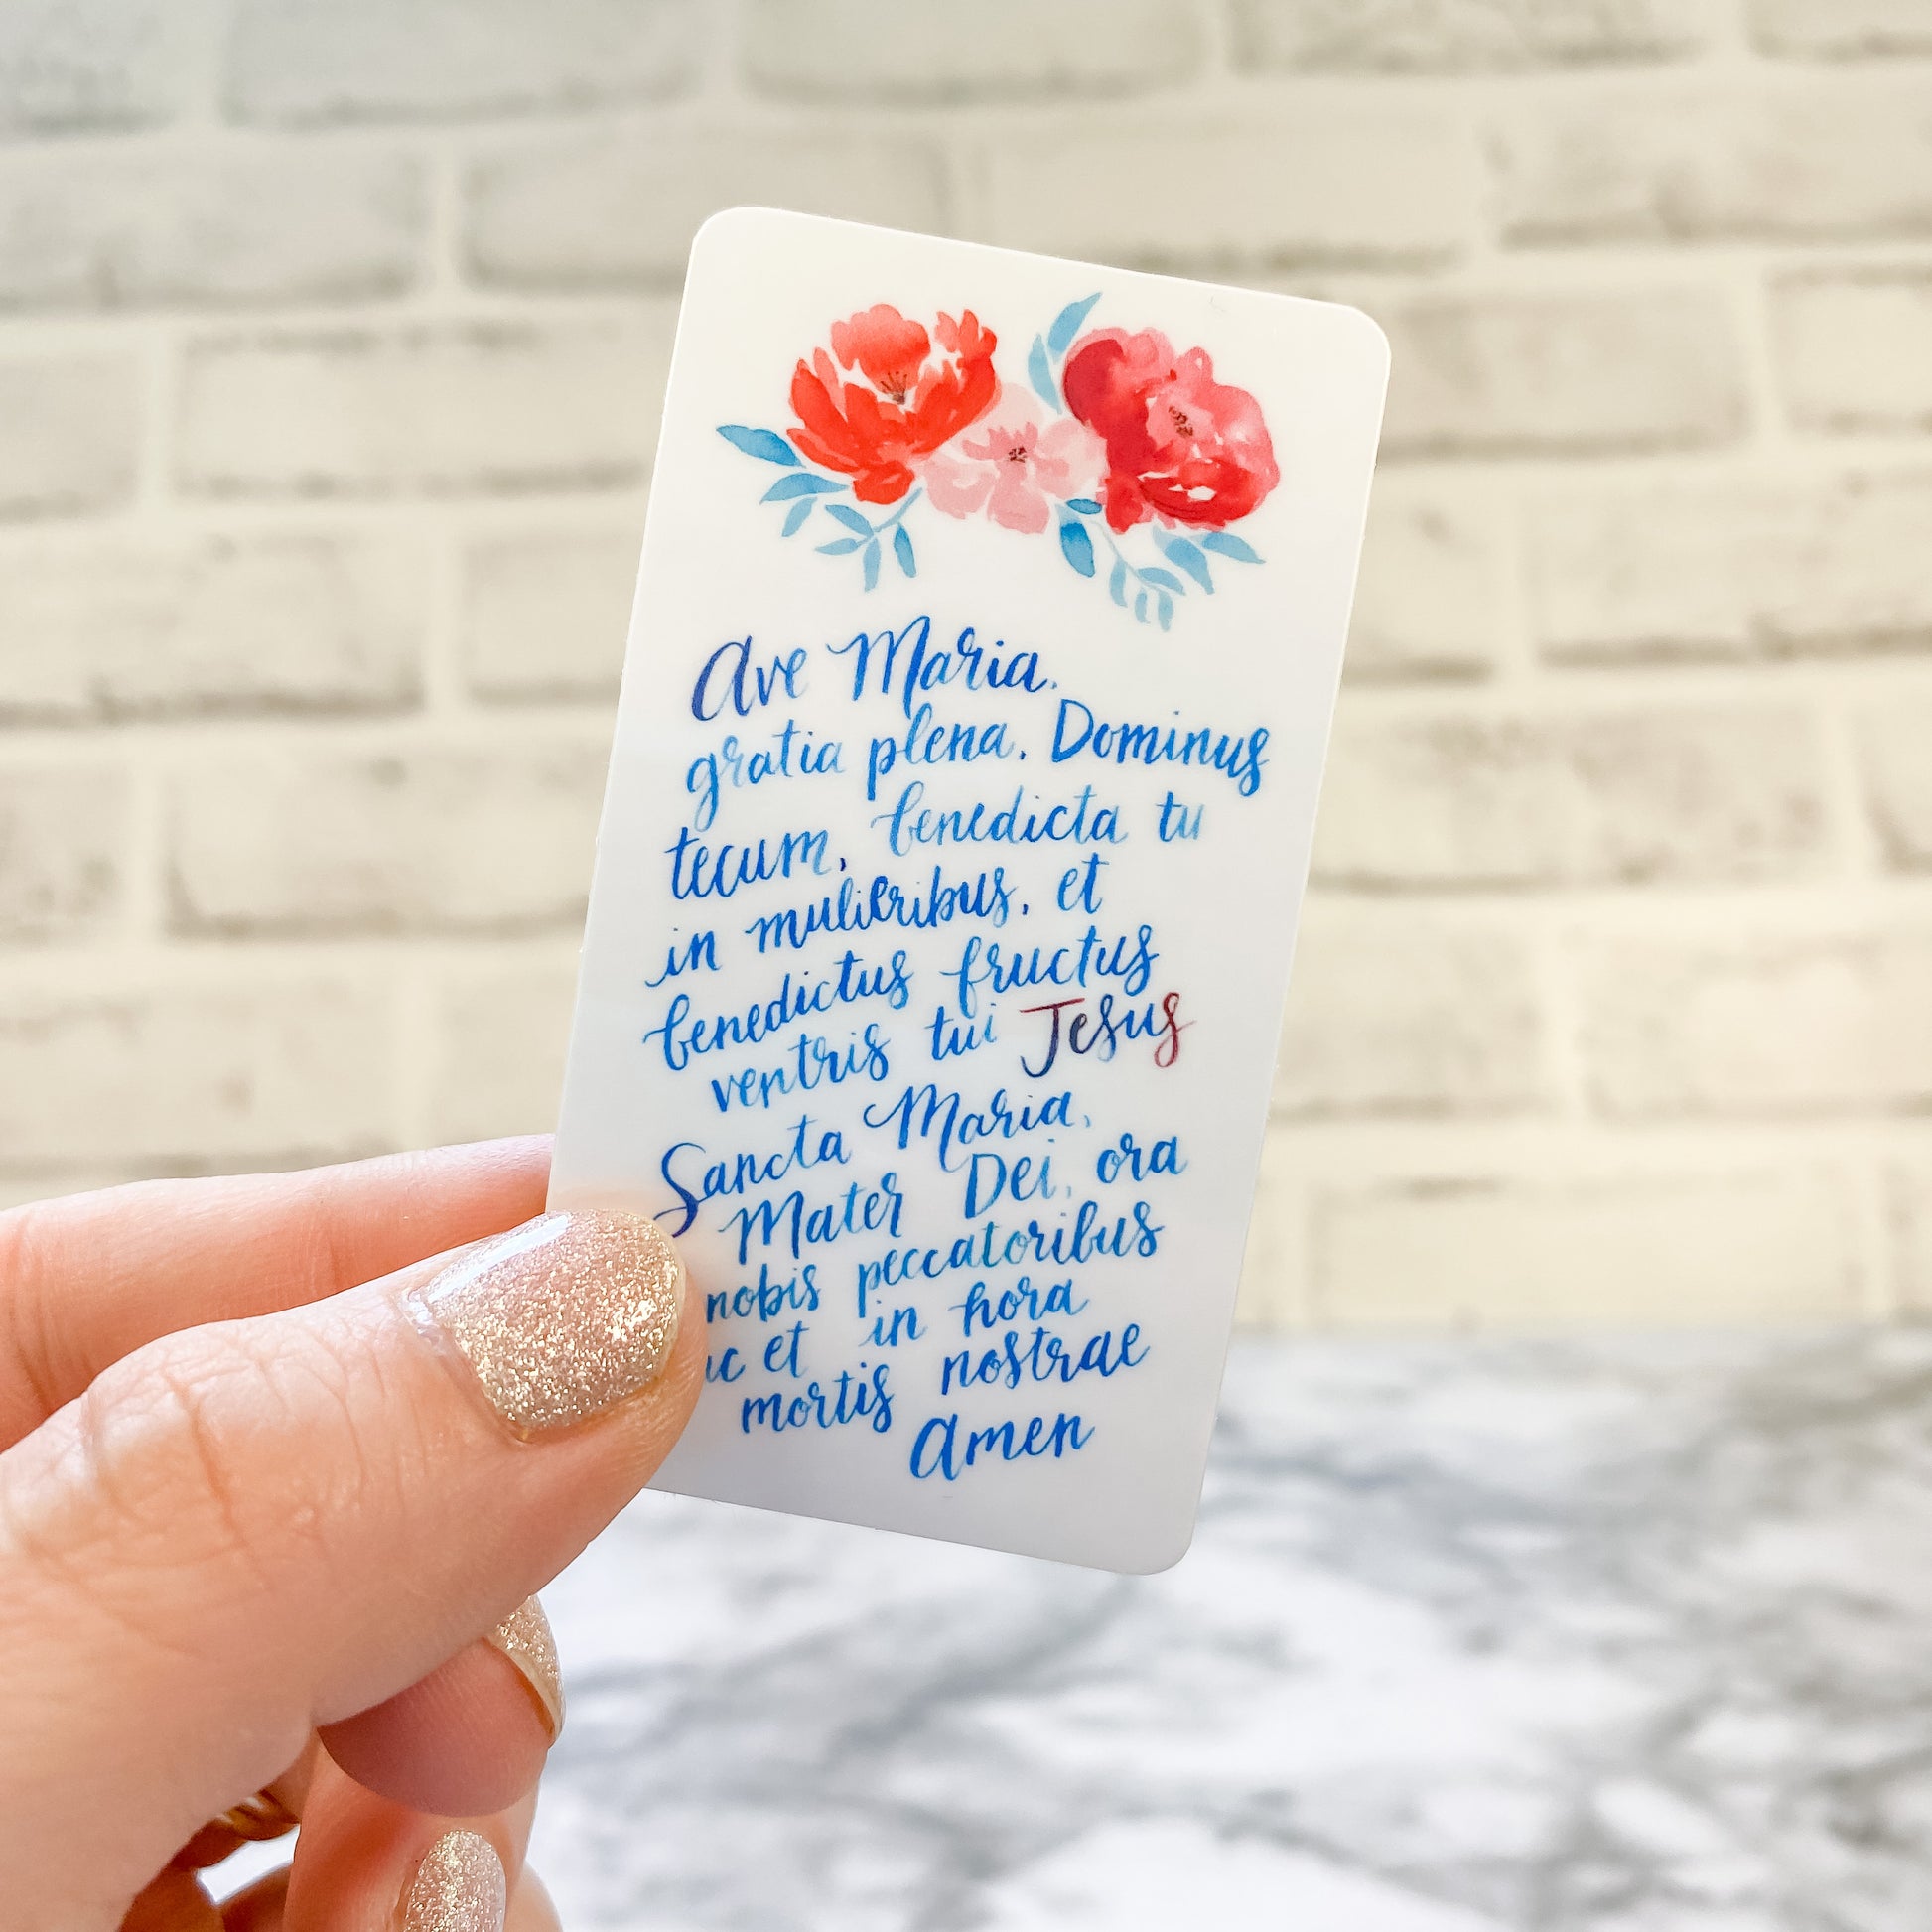 Ave Maria.
gratia plena. Dominus
tecum, benedicta tu
in mulieribus, et
benedictus fructus
ventris tui Jesus
Sancta Maria,
Mater Dei, ora
nobis peccatoribus
et in hora
mortis nostrae
Amen